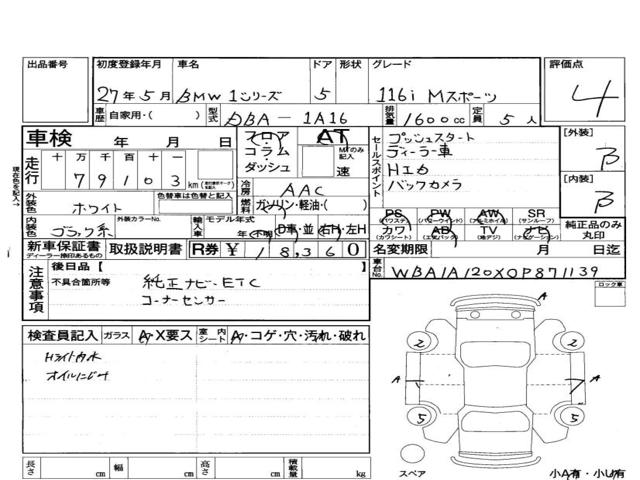 出品番号 初度登録年月 車名 ドア 形状 グレード 評価点
27年5月 BMW 1シリーズ 5 116i Mスポーツ 4
車歴 自家用・( ) 型式 DBA-1A16 排気量 1600cc 定員 5人
車検 年 月 日 フロア コラム ダッシュ AT MTのみ記入 速
セールスポイント
プッシュスタート
ディーラー車
HID
バックカメラ
[外装] B
[内装] B
走行 十 万 千 百 十 一
7 9 1 0 3 km
冷房 AAC
外装色 ホワイト 色替車は色替と記入
燃料 ガソリン・軽油・( )
現在色を記入→
内装色 ブラック系 外装カラーNo. 輸入車 モデル年式 (不明) D車・並 右H・左H
PS (パワステ) PW (パワーウインド) AW (アルミホイル) SR (サンルーフ)
カワ (カワシート) AB (エアバック) TV (地デジ) ナビ (ナビゲーション)
純正品のみ丸印
新車保証書 ディーラー捺印あるもの 取扱説明書 R券 ¥ 18,360
名変期限 月 日迄
車台No. WBA1A120X0P871139
注意事項 後日品【 】
不具合箇所等 純正ナビ・ETC
コーナーセンサー
ロック車
検査員記入 ガラス A・X要ス 室内シート A・コゲ・穴・汚れ・破れ
Hライト内水
オイルにじみ
A
2 2
A A
5 5
スペア
小A有・小U有
長さ cm 幅 cm 高さ cm 積載量 kg